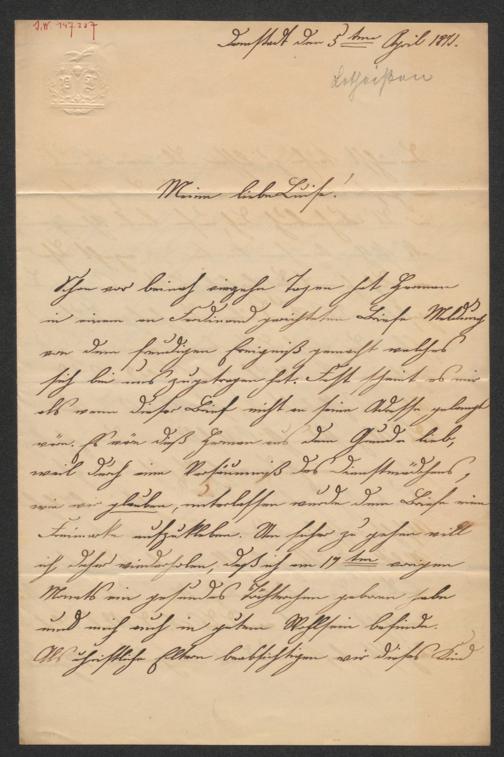 J.N. 147.227
Darmstadt den 5ten April 1871.
Lotheißen
Meine liebe Luise!
Schon vor beinah vierzehn Tagen hat Herman
in einem an Ferdinand gerichteten Briefe Meldung
von dem freudigen Ereigniß gemacht welches
sich bei uns zugetragen hat. Fast scheint es mir
als wenn dieser Brief nicht an seine Adresse gelangt
wär. Es wär daß Herman aus dem Grunde lieb,
weil durch eine Versäumniß des Dienstmädchens,
wie wir glauben, unterlassen wurde dem Briefe eine
Freimarke aufzukleben. Um sicher zu gehen will
ich daher wiederholen, daß ich am 17ten vorigen
Monats ein gesundes Töchterchen geboren habe
und mich auch in gutem Wohlsein befinde.
Als christliche Eltern beabsichtigen wir dieses Kind